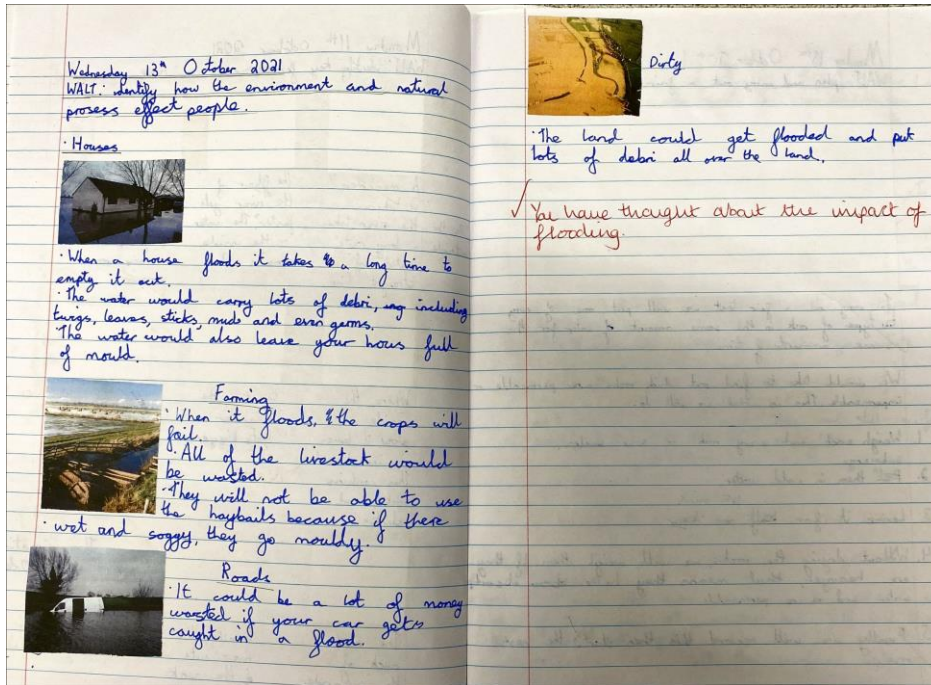 Wednesday 13th October 2021
WALT: identify how the environment and natural
prosess effect people.
· Houses
· When a house floods it takes a long time to
empty it out.
· The water would carry lots of debri, including
twigs, leaves, sticks, mud and even germs.
The water would also leave your hous full
of mould.
Farming
· When it floods, the crops will
fail.
· All of the livestock would
be wasted.
· They will not be able to use
the haybails because if there
· wet and soggy, they go mouldy.
Roads
· It could be a lot of money
wasted if your car gets
caught in a flood.
Dirty
· The land could get flooded and put
lots of debri all over the land.
You have thought about the impact of
flooding.